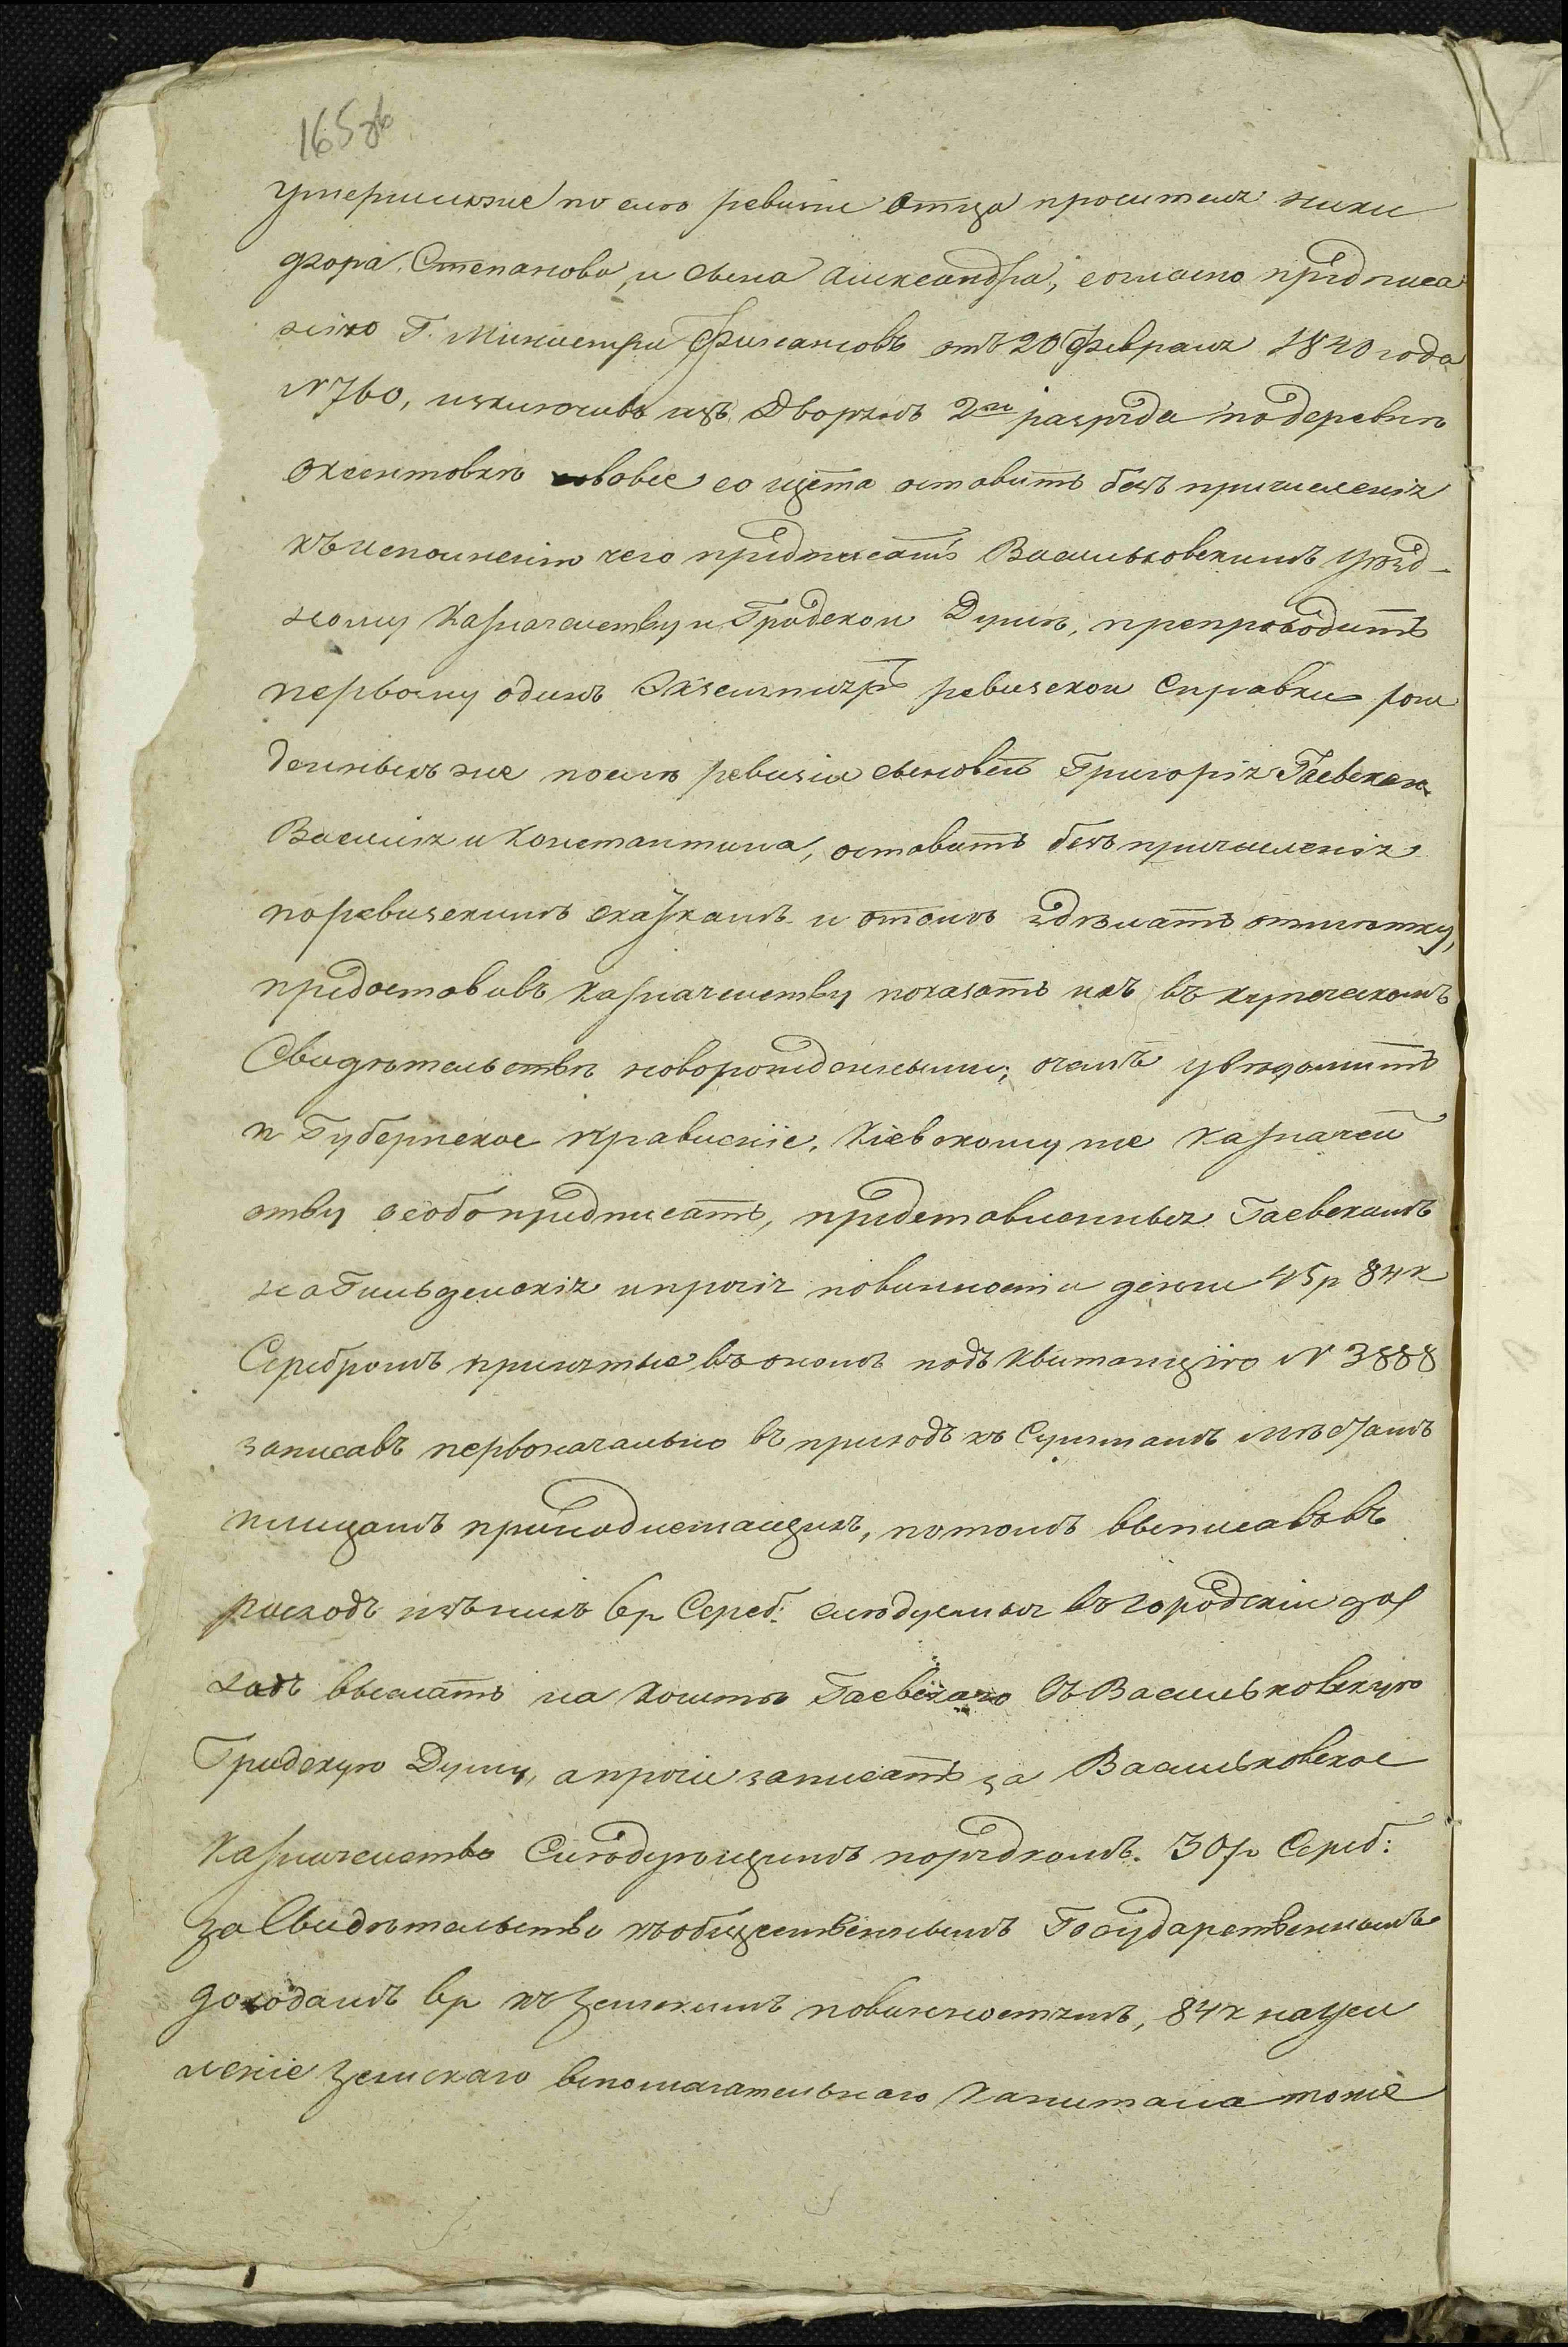 165об
умершихже после ревизіи Отца просителя Ники
фора Степанова, и сына Александра, согласно предписа
нію Г. Министра Финансовъ отъ 20 Февраля 1840 года
№ 760, исключивъ изъ Дворянъ 2го разряда по деревни
вовсе со щета оставить безъ причисленія
къ исполненію чего предписать Васильковскимъ Уезд-
ному Казначейству и Градской Думе, препроводить
первому одинъ Экземпляръ ревизской Справки рож
денныхъ же после ревизіи сыновей Григорія Гаевскаго
Василія и Константина, оставить безъ причисленія
по ревизскимъ сказкамъ и отомъ зделать отметку,
предоставивъ Казначейству показать ихъ въ купеческомъ
Свидетельстве новорожденными; очемъ уведомить
и Губернское Правленіе. Кіевскому же Казначей
ству особо предписать, представленныя Гаевскимъ
на Гильдейскія и прочія повинности деньги 45 р 84 к
Серебромъ принятые въ ономъ подъ квитанцію № 3888
записавъ первоначально въ приходъ къ Суммамъ местамъ
и лицамъ принадлежащихъ, потомъ выписавъ въ
расходъ изъ нихъ 6р Сереб: следуемыя въ городскій до
ходъ выслать на Кошты Гаевскаго въ Васильковскую
Градскую Думу, а прочіе записать за Васильковское
Казначейство Следующимъ порядкомъ. 30 р Сереб:
за Свидетельство къ общественнымъ Государственнымъ
доходамъ 6р къ Земскимъ повинностямъ, 84 к на уси
леніе Земскаго вспомагательнаго Капитала тоже